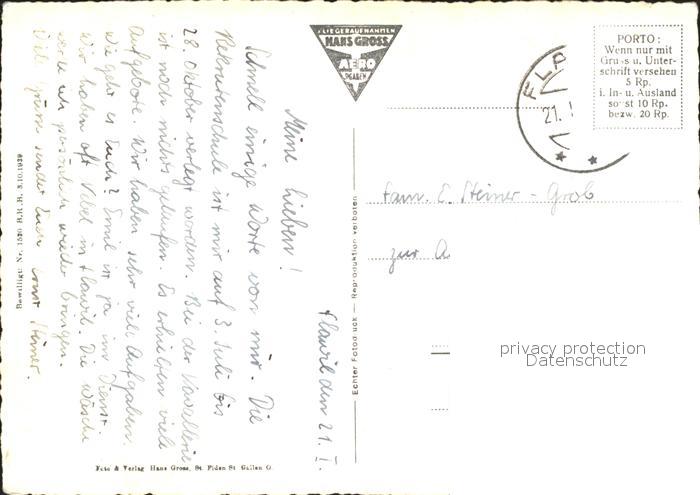 FLIEGERAUFNAHMEN
HANS GROSS
AERO
ST. GALLEN
PORTO:
Wenn nur mit
Gruss u. Unter-
schrift versehen
5 Rp.
i. In- u. Ausland
sonst 10 Rp.
bezw. 20 Rp.
FLA
21. I
Flawil den 21. I.
Meine Lieben!
Schnell einige Worte von mir. Die
Rekrutenschule ist mir auf 3. Juli bis
28. Oktober verlegt worden. Bei der Kavallerie
ist noch nichts gelaufen. Es erhielten viele
Aufgebote. Wir haben sehr viel Aufgaben.
Wie geht es Euch? Emil ist ja im Dienst.
Wir haben oft Nebel in Flawil. Die Wäsche
werde ich persönlich wieder bringen.
Viele Grüsse sendet Euch Ernst Steiner.
Fam. E. Steiner-Grob
zur
Echter Fotodruck — Reproduktion verboten
Bewilligt Nr. 1520 BRB. 3.10.1939
Foto & Verlag Hans Gross, St. Fiden St. Gallen O.
privacy protection
Datenschutz